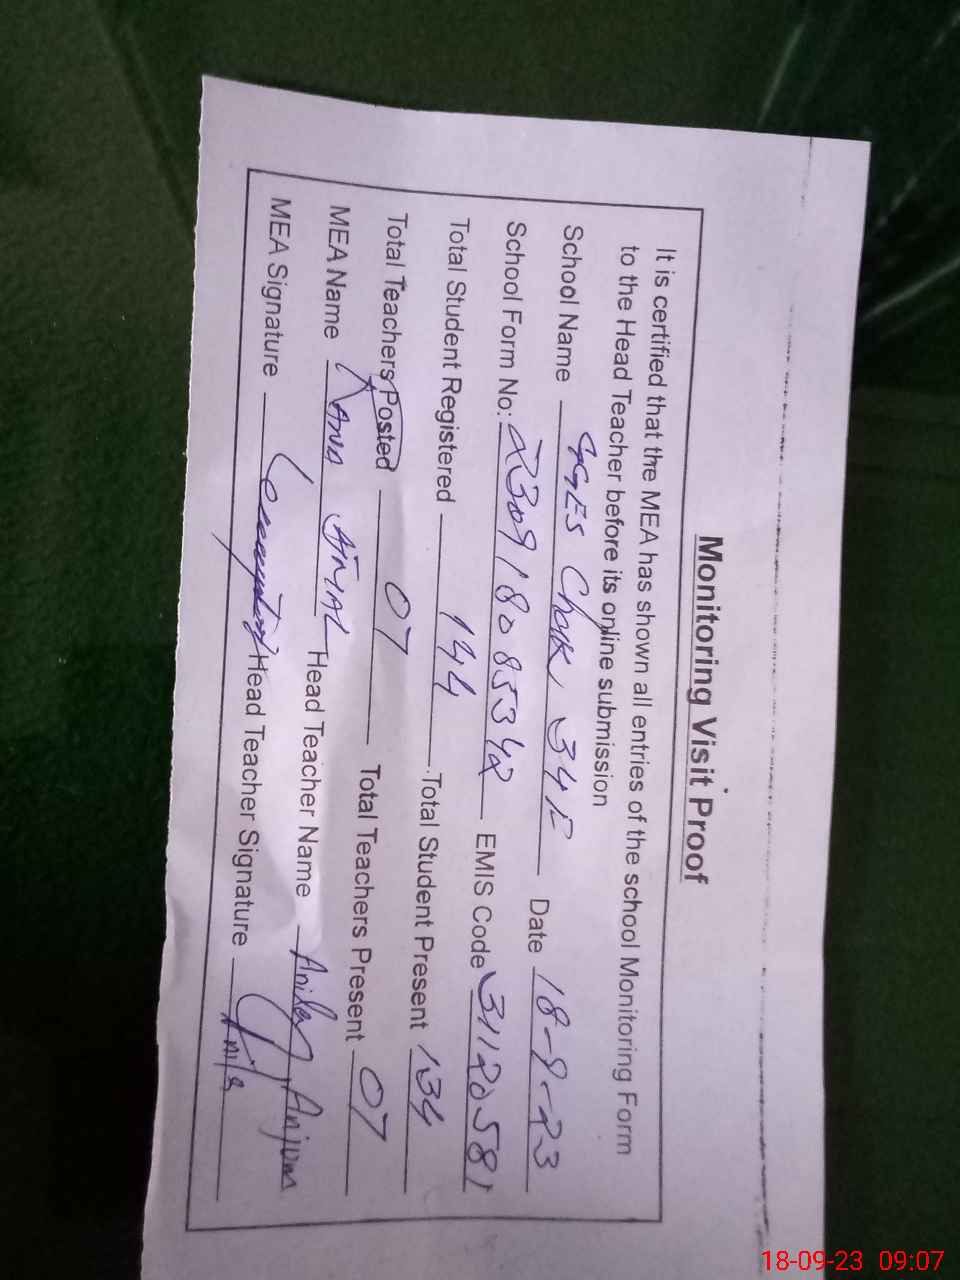 Monitoring Visit Proof
It is certified that the MEA has shown all entries of the school Monitoring Form
to the Head Teacher before its online submission
School Name GGES Chak 34 P Date 18-9-23
School Form No: 230918085342 EMIS Code 31120581
Total Student Registered 144 Total Student Present 134
Total Teachers Posted 07 Total Teachers Present 07
MEA Name Rana AJMAL Head Teacher Name Anila Anjum
MEA Signature Head Teacher Signature Anila
18-09-23 09:07